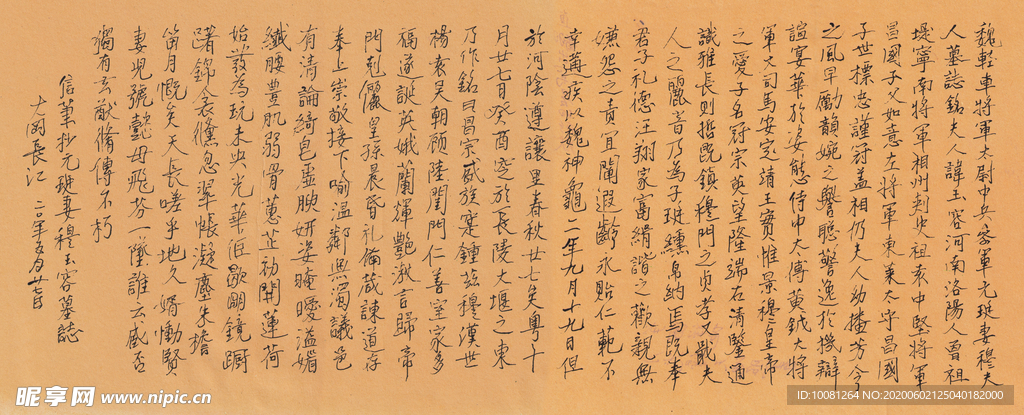 魏輕車將軍太尉中兵參軍元珽妻穆夫
人墓誌銘夫人諱玉容河南洛陽人曾祖
堤寧南將軍相州刺史祖袁中堅將軍
昌國子父如意左將軍東萊太守昌國
子世標忠謹冠蓋相仍夫人幼播芳令
之風早勵韻婉之鑒聰警逸於機辯
誼宴華於姿態侍中太傅黃鉞大將
軍大司馬安定靖王實惟景穆皇帝
之愛子名冠宗英望隆端右清鑒通
識雅長則哲既鎮穆門之貞孝又戢夫
人之麗音乃為子珽纁帛納焉既奉
君子礼德汪翔家富絹諧之歡親無
嫌怨之責宜闡遐齡永貽仁範不
幸遘疾以魏神龜二年九月十九日但
於河陰遵讓里春秋廿七矣粵十
月廿七日癸酉窆於長陵大堰之東
乃作銘曰昌宗盛族寔鍾茲穆漢世
楊袁吳朝顧陸閨門仁善室家多
福遂誕英娥蘭輝艷淑言歸帝
門剋儷皇孫晨昏礼備箴諫道存
奉上崇敬接下喻温鄰無濁議邑
有清論綺皃虛腴妍姿晻曖溢媚
纖腰豐肌弱骨蕙芷初開蓮荷
始發為玩未央光華徂歇明鏡廚
踷錦衾儵忽翠帳凝塵朱檐
笛月慨矣天長嗟乎地久婿慟賢
妻兒號懿母飛芬一墜誰云感否
獨有玄猷脩傳不朽
信筆抄元珽妻穆玉容墓誌
大閑長江 二〇年五月廿七日
昵享网 www.nipic.cn
ID:10081264 NO:20200602125040182000